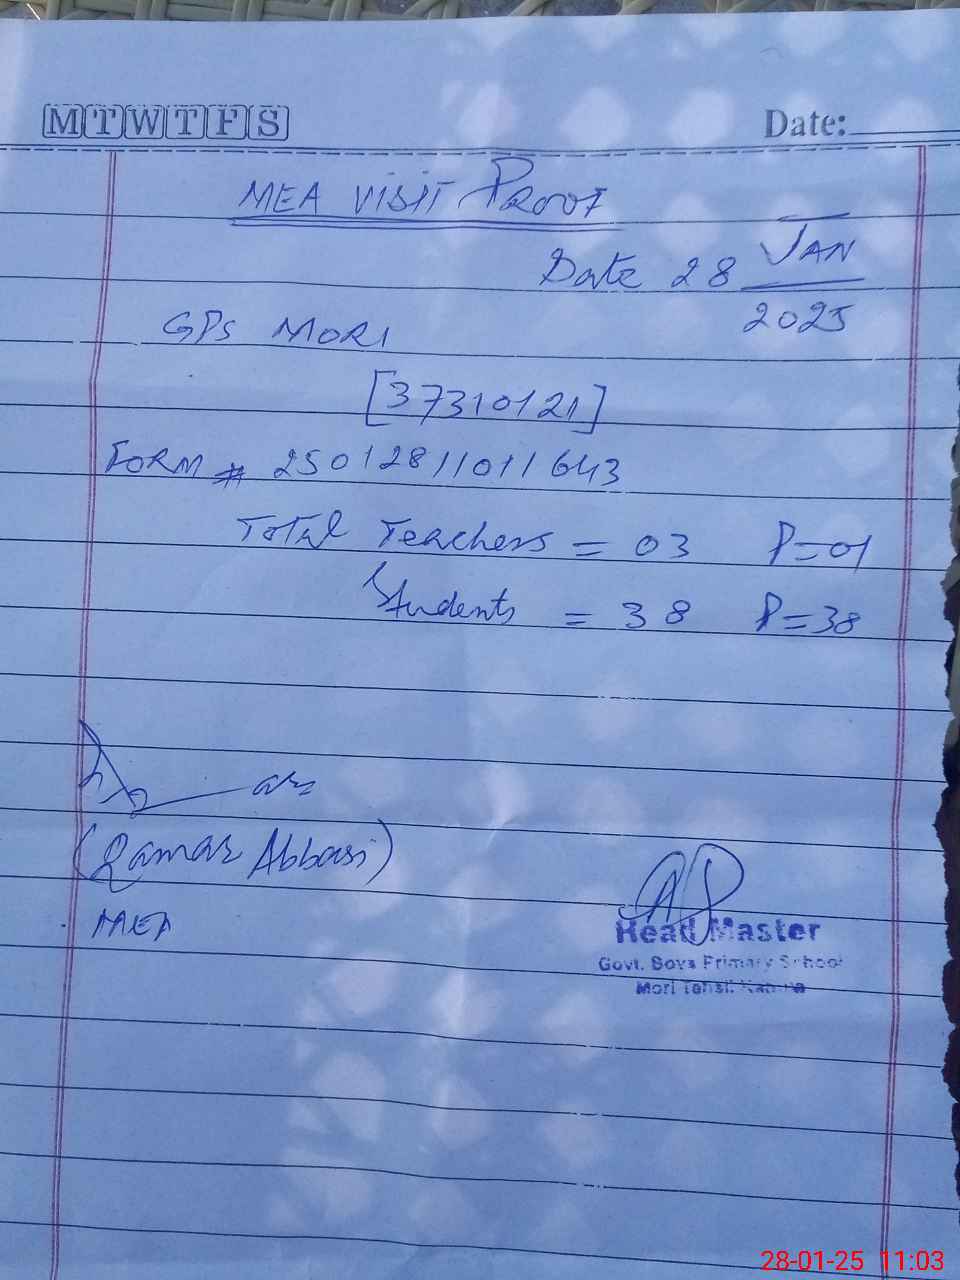 M T W T F S Date:
MEA VISIT PROOF
Date 28 JAN
2025
GPS MORI
[37310121]
FORM # 25012811011643
Total Teachers = 03 P=01
Students = 38 P=38
(Qamar Abbasi)
MEA
Head Master
Govt. Boys Primary School
Mori Tehsil
28-01-25 11:03